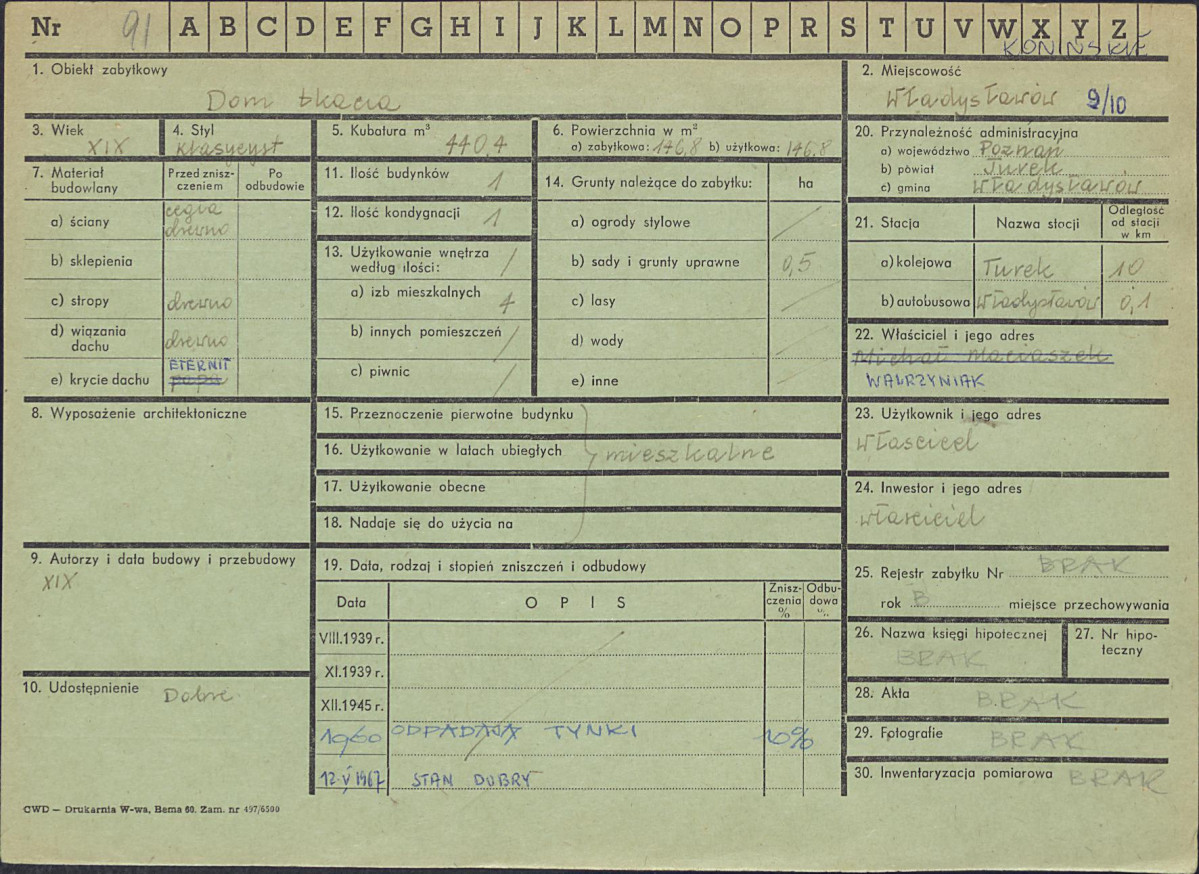 Nr 91 A B C D E F G H I J K L M N O P R S T U V W X Y Z
KONIŃSKIE
1. Obiekt zabytkowy
Dom tkacza
2. Miejscowość
Władysławów 9/10
3. Wiek
XIX
4. Styl
klasycyst
5. Kubatura m³
440,4
6. Powierzchnia w m²
a) zabytkowa: 146,8 b) użytkowa: 146,8
20. Przynależność administracyjna
a) województwo Poznań
b) powiat Turek
c) gmina Władysławów
7. Materiał budowlany
Przed znisz-
czeniem
Po
odbudowie
a) ściany cegła
drewno
b) sklepienia
c) stropy drewno
d) wiązania
dachu drewno
ETERNIT
e) krycie dachu papa
11. Ilość budynków
1
12. Ilość kondygnacji
1
13. Użytkowanie wnętrza
według ilości: /
a) izb mieszkalnych 4
b) innych pomieszczeń /
c) piwnic /
14. Grunty należące do zabytku: ha
a) ogrody stylowe /
b) sady i grunty uprawne 0,5
c) lasy /
d) wody /
e) inne /
21. Stacja Nazwa stacji
Odległość
od stacji
w km
a) kolejowa Turek 10
b) autobusowa Władysławów 0,1
22. Właściciel i jego adres
Michał Maciaszek
WAWRZYNIAK
8. Wyposażenie architektoniczne
15. Przeznaczenie pierwotne budynku
16. Użytkowanie w latach ubiegłych
mieszkalne
17. Użytkowanie obecne
18. Nadaje się do użycia na
23. Użytkownik i jego adres
właściciel
24. Inwestor i jego adres
właściciel
9. Autorzy i data budowy i przebudowy
XIX
19. Data, rodzaj i stopień zniszczeń i odbudowy
Data OPIS
Znisz-
czenia
%
Odbu-
dowa
%
VIII.1939 r.
XI.1939 r.
XII.1945 r.
1960 ODPADAJĄ TYNKI 10%
12.V 1967 STAN DOBRY
25. Rejestr zabytku Nr BRAK
rok B miejsce przechowywania
26. Nazwa księgi hipotecznej
BRAK
27. Nr hipo-
teczny
10. Udostępnienie Dobre.
28. Akta BRAK
29. Fotografie BRAK
30. Inwentaryzacja pomiarowa BRAK
CWD — Drukarnia W-wa, Bema 60. Zam. nr 497/6500